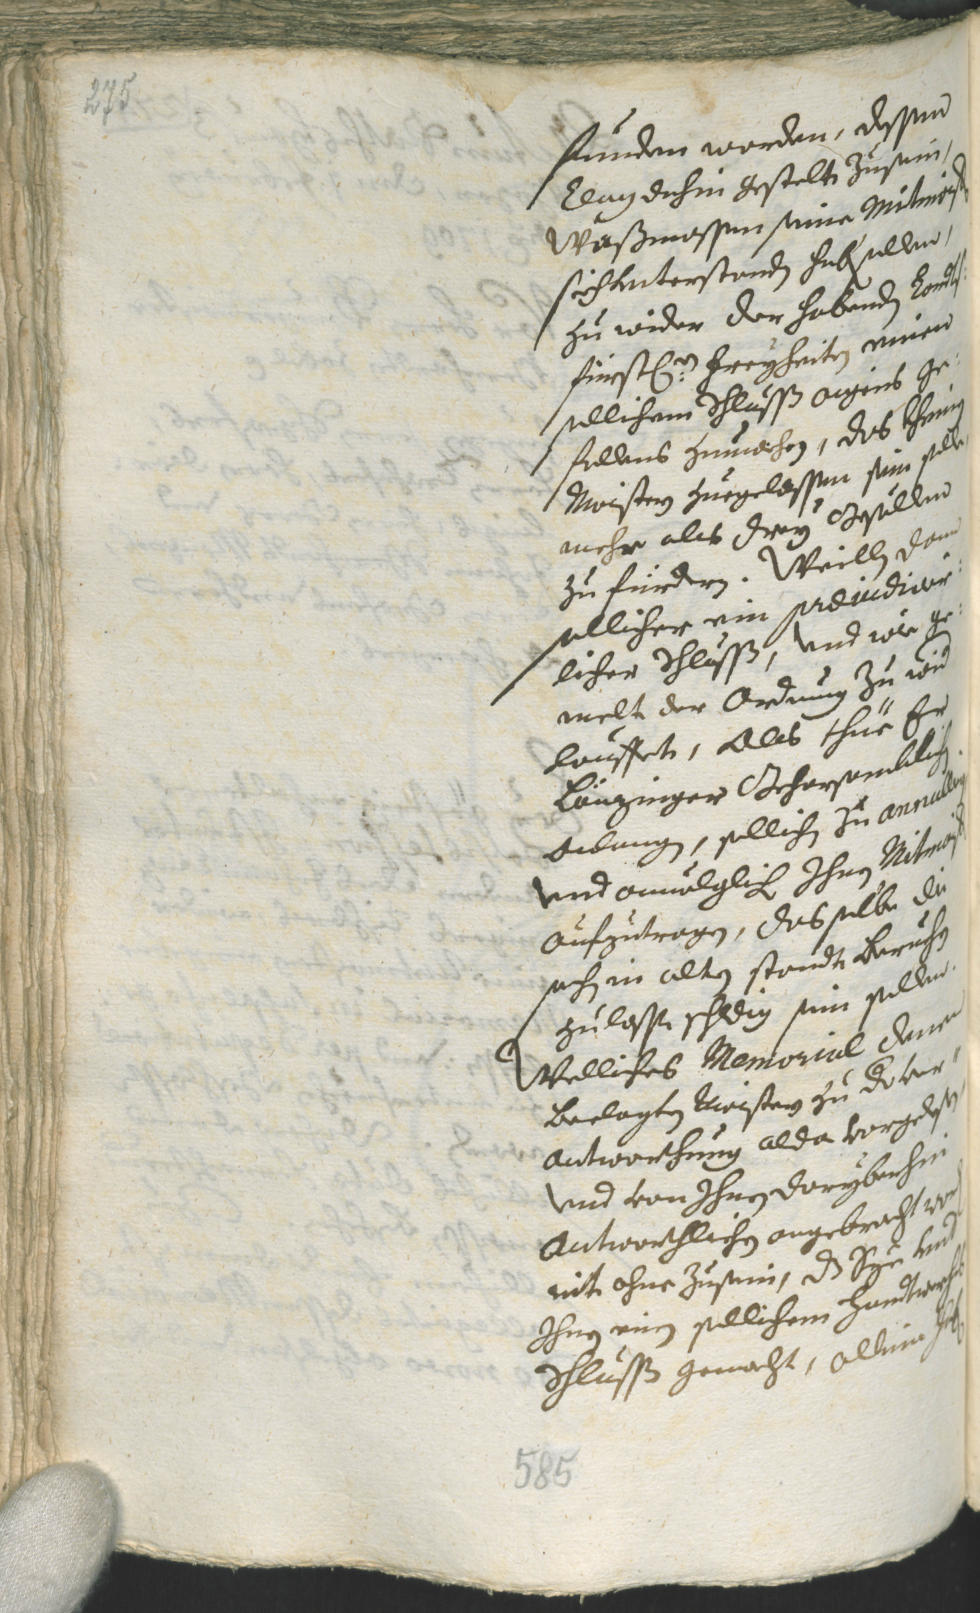 275
funden worden, dessen
Clag dahin gestelt zusein,
Waßmassen seine Mitmaist
sich unterstandt hab sollen,
zu wider der habendt Landts
fürstl: Freyheiten einen
sollichen Schluss aigens ge-
fallens zumachen, das khein
Maister zuegelassen sein solle
mehr als drey Gesellen
zu fürdern. Weill dan
sollicher ein præiudicir-
licher Schluss, und wie ge-
melt der Ordnung zu wid
lauffet, Als thue Er
Länzinger Gehorsamblich
anlangen, sollichen zu annulliern
und Ihnen Mitmaist
aufzutragen, das selbe die
sach in alten standt beruhen
zulassen schuldig sein sollen.
Welliches Memorial denen
beclagten Maistern zu der ver-
antworthung alda vorgelesen
und von Ihnen darüberhin
Antworthlichen angebracht word
nit ohne zusein, dz Sye und
Ihnen einen sollichen Handtwerchs
Schluss gemacht, allein hab
585